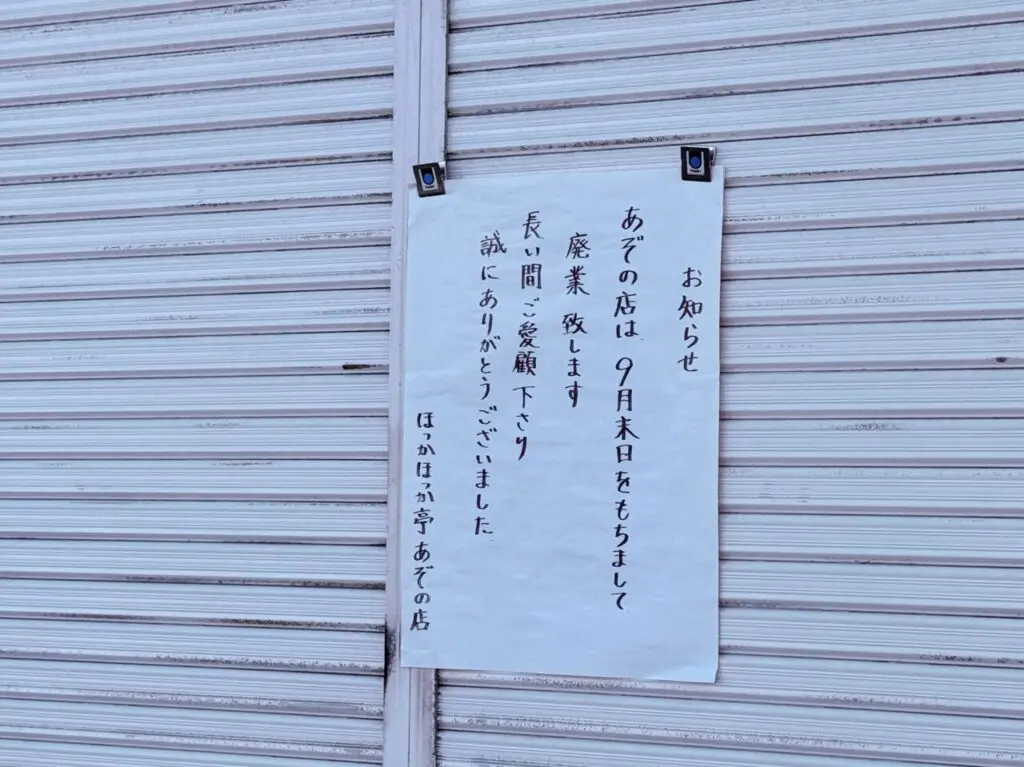 お知らせ
あぞの店は9月末日をもちまして
廃業致します
長い間ご愛顧下さり
誠にありがとうございました
ほっかほっか亭あぞの店